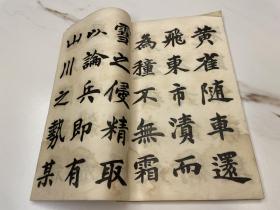 黃雀随車還
飛東市漬而
為種不無霜
雪之侵精取
以論兵即有
山川之勢某